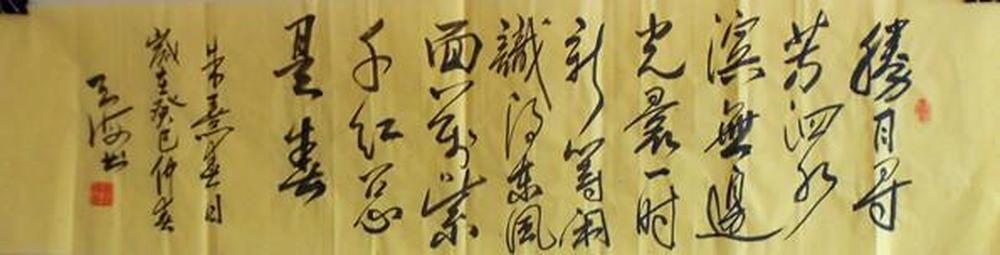 勝日尋
芳泗水
滨無邊
光景一时
新等闲
識得東風
面萬紫
千红总
是春
朱熹春日
歲在癸巳仲春
海书